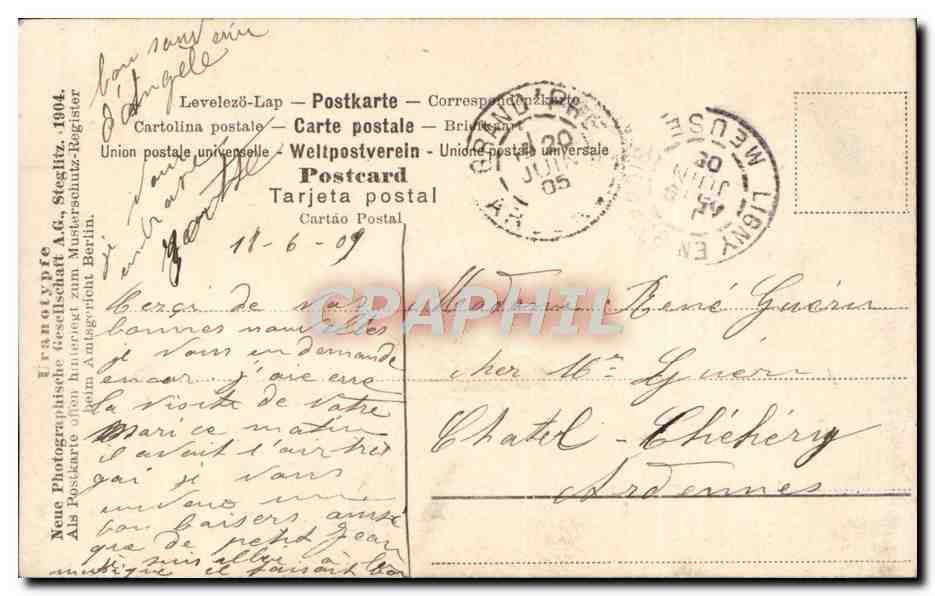 bon souvenir
d'Angele
je vous
embrasse
Levelező-Lap — Postkarte — Correspondenzkarte
Cartolina postale — Carte postale — Briefkaart
Union postale universelle — Weltpostverein — Unione postale universale
Postcard
Tarjeta postal
Cartão Postal
GRAND'PRÉ
20
JUIN
05
LIGNY EN
MEUSE
JUIN
05
Neue Photographische Gesellschaft A.G., Steglitz. 1904.
Als Postkarte offen hinterlegt zum Musterschutz-Register
beim Amtsgericht Berlin.
18-6-05
Merçi de vos
bonnes nouvelles
je vous en demande
encor j'aie eue
la visite de votre
mari ce matin
il avait l'air très
gai je vous
envoie un
bon baisers ainsi
que de petit Jean
je suis allée à la
musique il faisait bon
Madame René Guérin
chez Mr Guérin
Chatel-Chéhéry
Ardennes
CPAPHIL